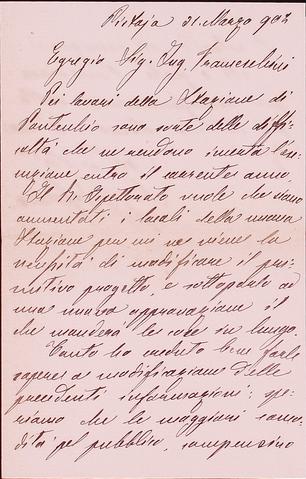 Pistoja 31. Marzo 902
Egregio Sig. Ing. Franceschini
Pei lavori della Stazione di
sono sorte delle diffi-
coltà che ne rendono incerta l'ese-
cuzione entro il corrente anno.
Il R. Ispettorato vuole che siano
aumentati i locali della nuova
Stazione per cui ne viene la
necessità di modificare il pri-
mitivo progetto, e sottoporlo ad
una nuova approvazione il
che manderà le cose in lungo.
Tanto ho creduto bene farle
sapere a modificazione delle
precedenti informazioni; spe-
riamo che le maggiori como-
dità pel pubblico, compensino